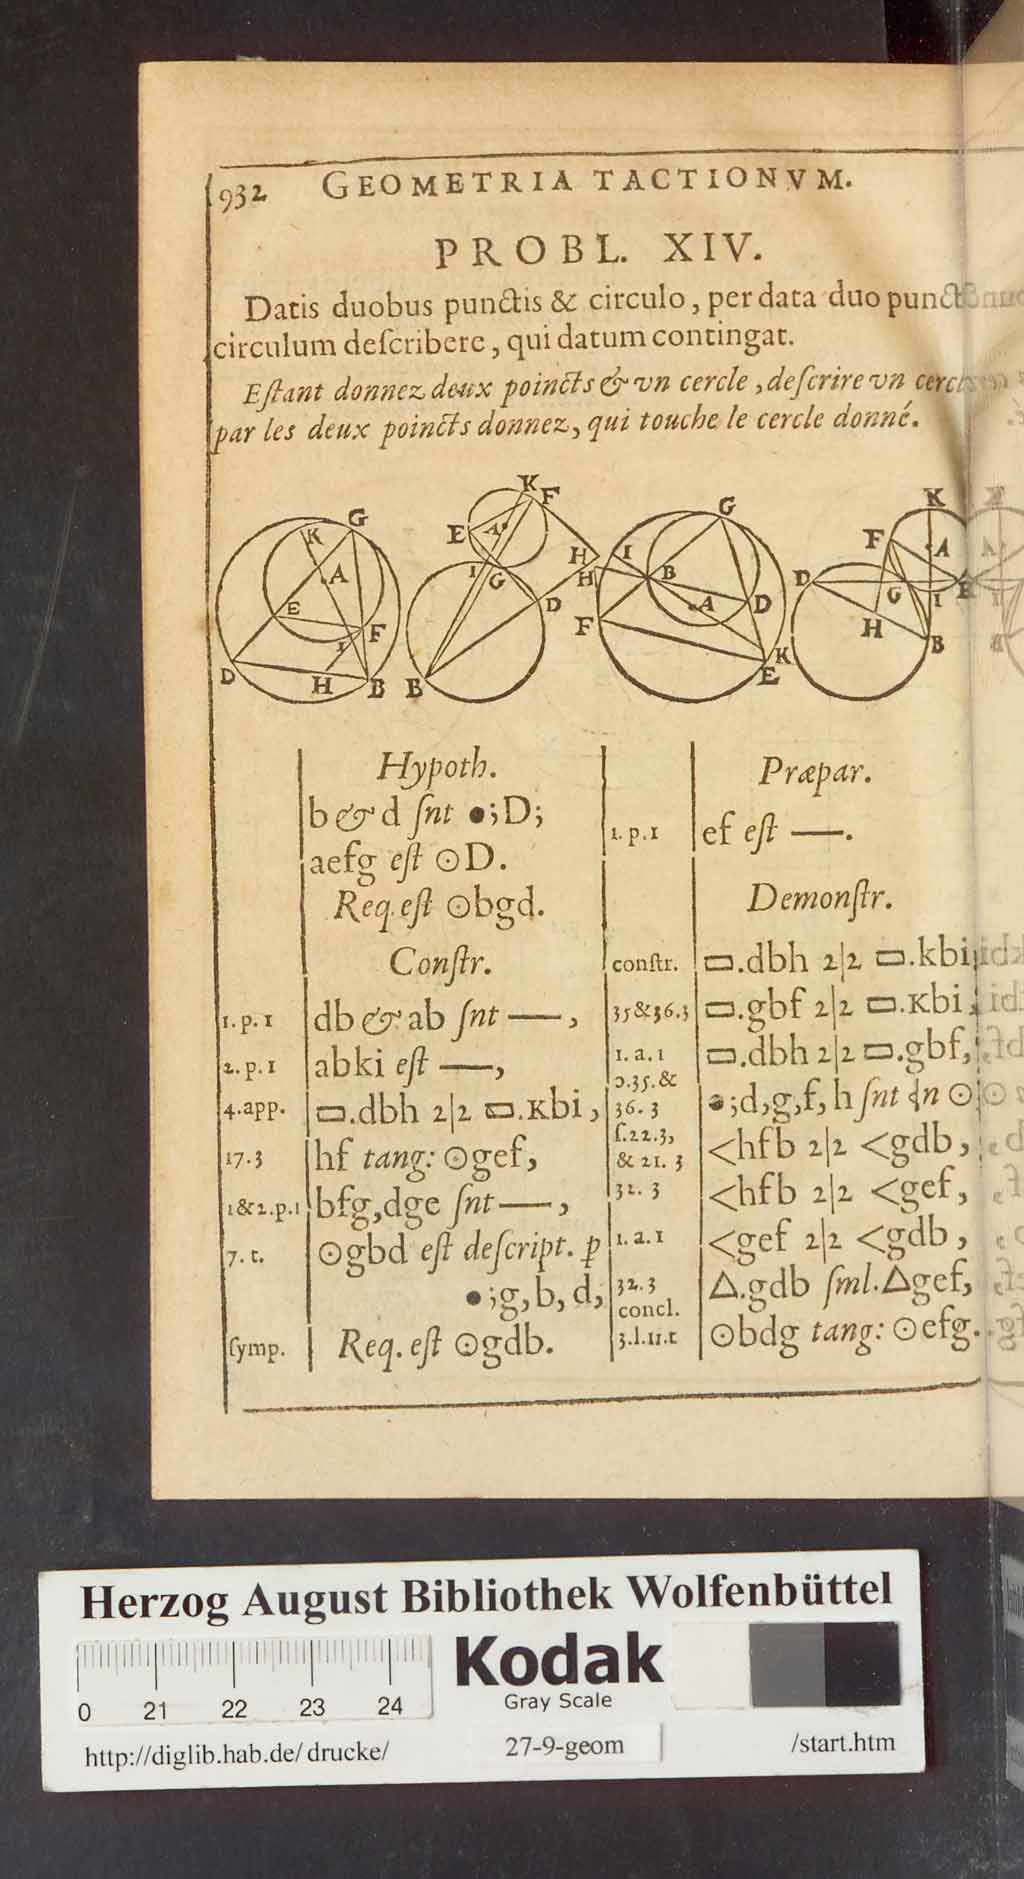 932 GEOMETRIA TACTIONVM.
PROBL. XIV.
Datis duobus punctis & circulo, per data duo
circulum deſcribere, qui datum contingat.
Eſtant donnez deux poincts & vn cercle, deſcrire vn
par les deux poincts donnez, qui touche le cercle donné.
K G A E F I D H B
K F E A H I G D B
G H I B A D F K E
K F A D G I E H B
Hypoth.
b & d ſnt •;D;
aefg eſt ⊙D.
Req. eſt ⊙bgd.
Conſtr.
1.p.1 db & ab ſnt —,
2.p.1 abki eſt —,
4.app. ▭.dbh 2|2 ▭.Kbi,
17.3 hf tang: ⊙gef,
1&2.p.1 bfg,dge ſnt —,
7.t. ⊙gbd eſt deſcript. p
•;g,b,d,
ſymp. Req. eſt ⊙gdb.
Præpar.
1.p.1 ef eſt —.
Demonſtr.
conſtr. ▭.dbh 2|2 ▭.kbi,
35&36.3 ▭.gbf 2|2 ▭.Kbi,
1.a.1 ▭.dbh 2|2 ▭.gbf,
ɔ.35.&
36.3 •;d,g,f,h ſnt in ⊙
ſ.22.3,
& 21.3 <hfb 2|2 <gdb,
32.3 <hfb 2|2 <gef,
1.a.1 <gef 2|2 <gdb,
32.3 △.gdb ſml. △gef,
concl.
3.l.11.t ⊙bdg tang: ⊙efg.
Herzog August Bibliothek Wolfenbüttel
Kodak
Gray Scale
0 21 22 23 24
http://diglib.hab.de/drucke/ 27-9-geom /start.htm